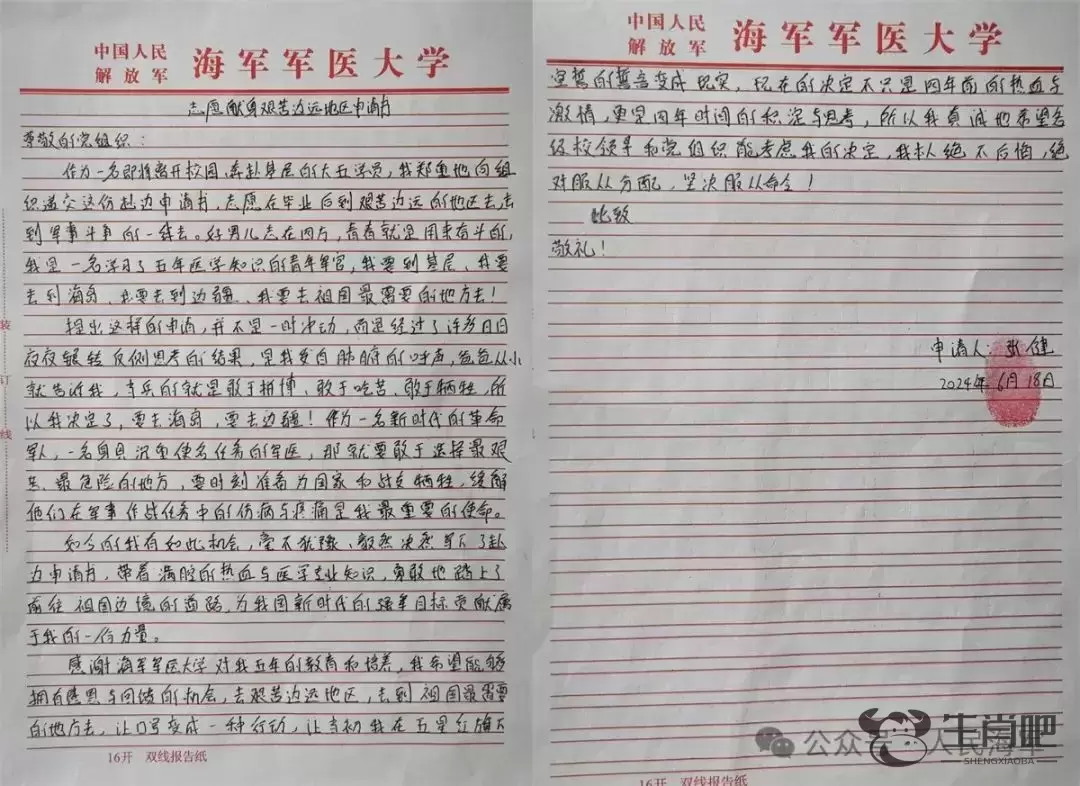 中国人民
解放军
海军军医大学
志愿献身艰苦边远地区申请书
尊敬的党组织：
作为一名即将离开校园、奔赴基层的大五学员，我郑重地向组
织递交这份赴边申请书，志愿在毕业后到艰苦边远的地区去，去
到军事斗争的一线去。好男儿志在四方，青春就是用来奋斗的，
我是一名学习了五年医学知识的青年军官，我要到基层、我要
去到海岛、我要去到边疆、我要去祖国最需要的地方去！
提出这样的申请，并不是一时冲动，而是经过了许多日日
夜夜辗转反侧思考的结果，是我发自肺腑的呼声，爸爸从小
就告诉我，当兵的就是敢于拼搏、敢于吃苦、敢于牺牲，所
以我决定了，要去海岛，要去边疆！作为一名新时代的革命
军人，一名身具沉重使命任务的军医，那就要敢于选择最艰
苦、最危险的地方，要时刻准备为国家和战友牺牲，缓解
他们在军事作战任务中的伤病与疼痛是我最重要的使命。
如今的我有如此机会，毫不犹豫、毅然决然写下了赴
边申请书，带着满腔的热血与医学专业知识，勇敢地踏上了
前往祖国边境的道路，为我国新时代的强军目标贡献属
于我的一份力量。
感谢海军军医大学对我五年的教育和培养，我希望能够
拥有感恩与回馈的机会，去艰苦边远地区，去到祖国最需要
的地方去，让口号变成一种行动，让当初我在五星红旗下
16开 双线报告纸
装
订
线
中国人民
解放军
海军军医大学
坚誓的誓言变成现实，现在的决定不只是四年前的热血与
激情，更是四年时间的积淀与思考，所以我真诚地希望各
级校领导和党组织能考虑我的决定，我本人绝不后悔，绝
对服从分配，坚决服从命令！
此致
敬礼！
申请人：张健
2024年6月18日
16开 双线报告纸
公众号
人民海军
生肖吧
SHENGXIAOBA